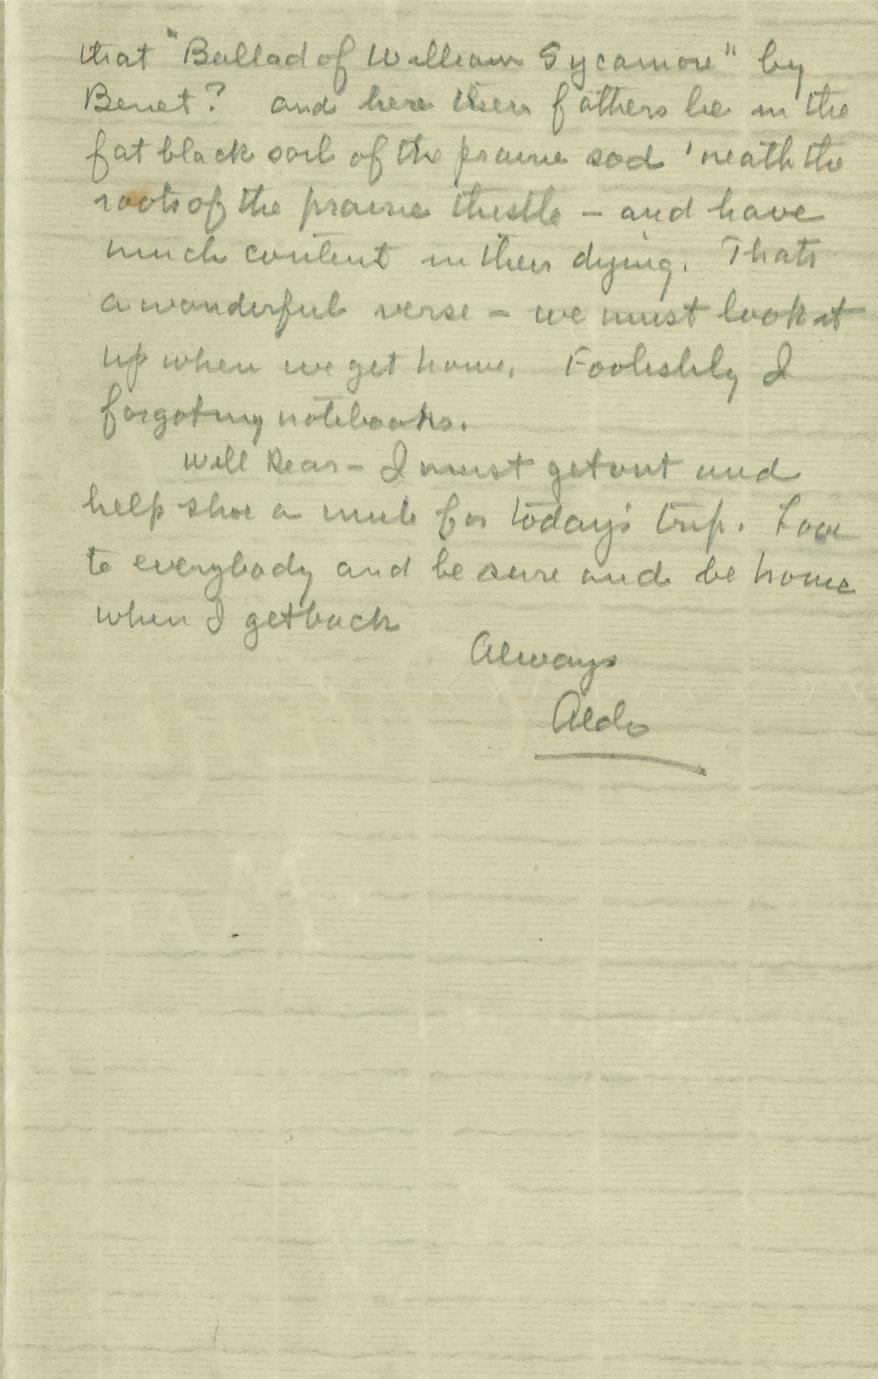 that "Ballad of William Sycamore" by
Benet? and here their fathers lie in the
fat black soil of the prairie sod 'neath the
roots of the prairie thistle – and have
much content in their dying. Thats
a wonderful verse – we must look it
up when we get home. Foolishly I
forgot my notebooks.
Well Dear – I must get out and
help shoe a mule for today's trip. Love
to everybody and be sure and be home
when I get back
Always
Aldo